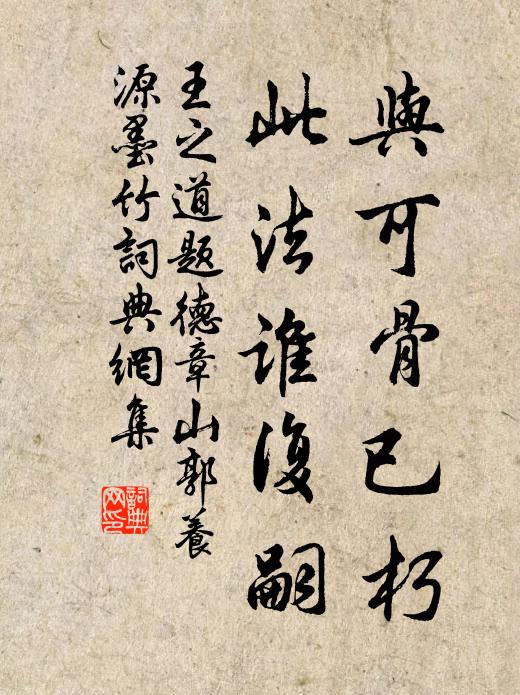 與可骨已朽
此法誰復嗣
王之道題德章山郭養
源墨竹詞典網集
詞典
网印